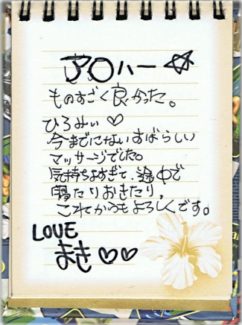 アロハー☆
ものすごく良かった。
ひろみぃ♡
今までにないすばらしい
マッサージでした。
気持ちよすぎて、途中で
寝たりおきたり。
これからもよろしくです。
LOVE
まき♡♡